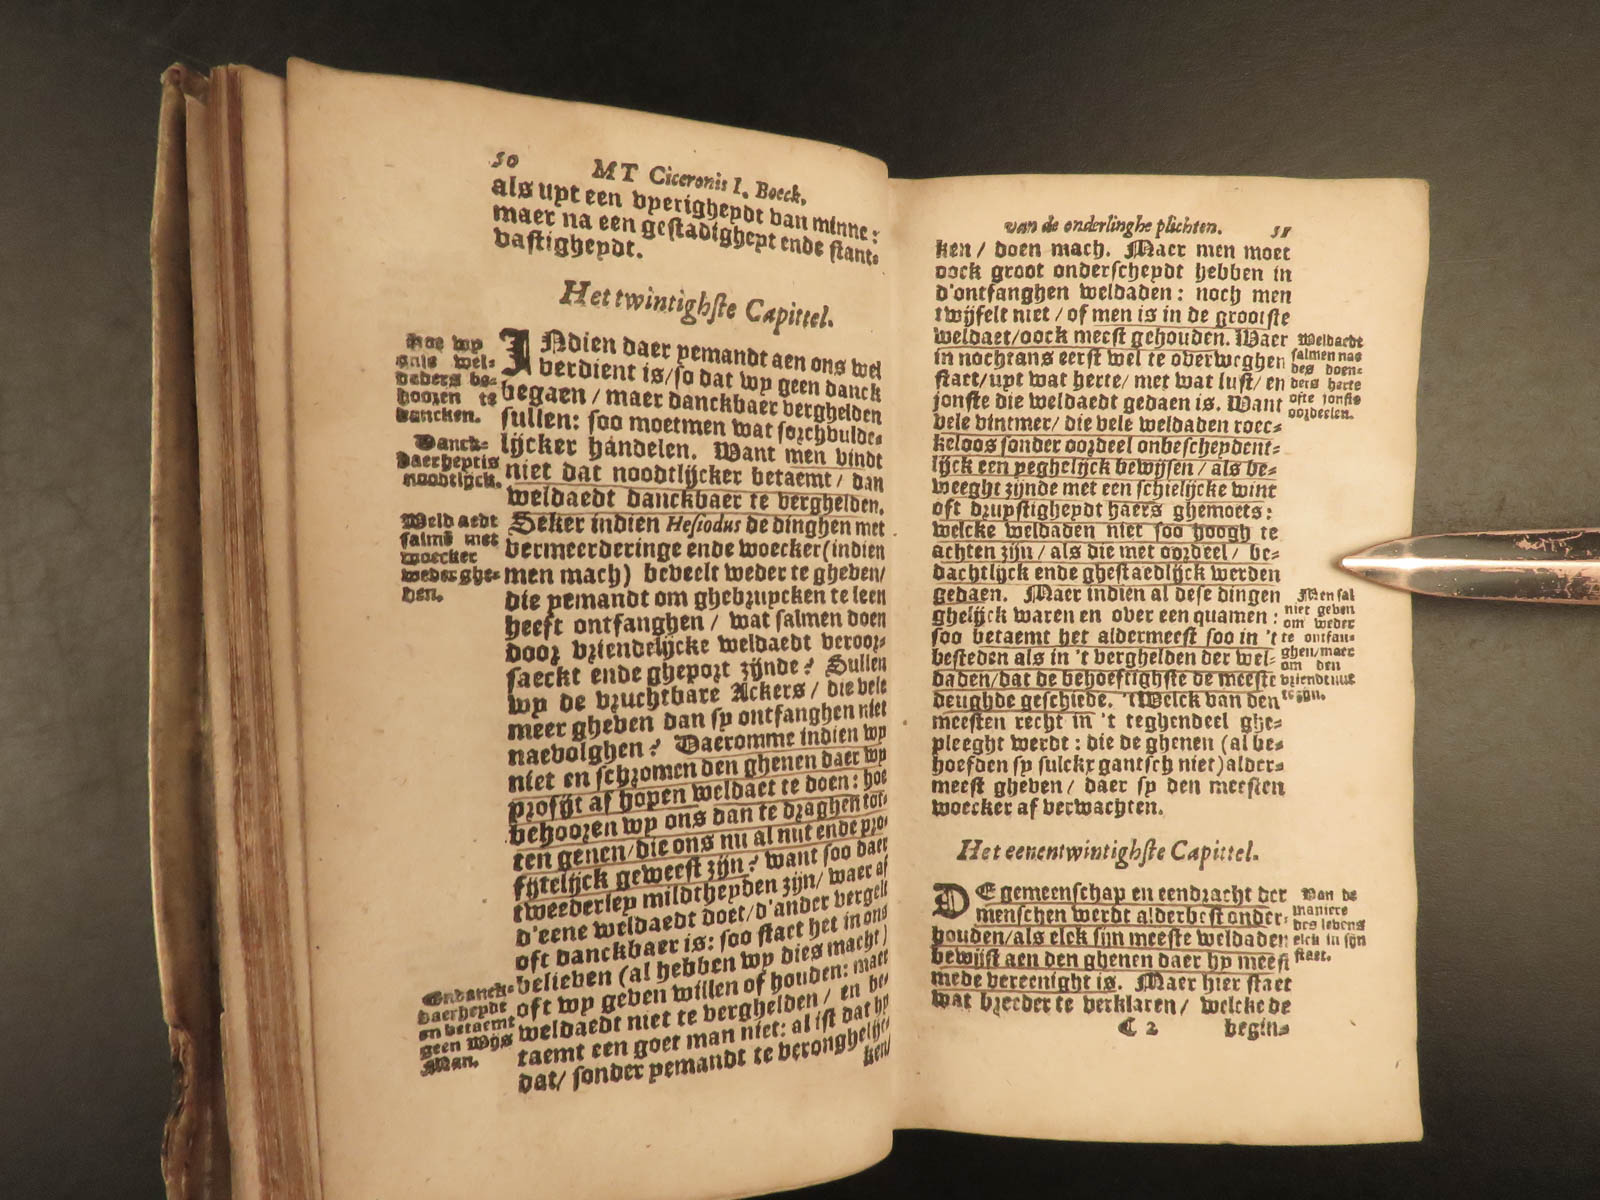 50 MT Ciceronis I. Boeck,
als uyt een vyerigheydt van minne:
maer na een gestadigheyt ende stant-
vastigheydt.
Het twintighste Capittel.
Hoe wy
ons wel-
daders be-
hoozen te
dancken.
Danck-
baerheyt is
noodtlijck.
Weldaedt
salmē met
woecker
weder ghe-
ven.
Ondanck-
baerheydt
en betaemt
geen Wijs
Man.
INdien daer yemandt aen ons wel
verdient is/so dat wy geen danck
begaen/ maer danckbaer verghelden
sullen: soo moetmen wat sorchvulde-
lijcker handelen. Want men vindt
niet dat noodtlijcker betaemt/ dan
weldaedt danckbaer te verghelden.
Seker indien Hesiodus de dinghen met
vermeerderinge ende woecker (indien
men mach) beveelt weder te gheven/
die yemandt om ghebruycken te leen
heeft ontfanghen/ wat salmen doen
door vriendelijcke weldaedt veroor-
saeckt ende gheport zijnde? Sullen
wy de vruchtbare Ackers/ die vele
meer gheven dan sy ontfanghen niet
naevolghen? Daeromme indien wy
niet en schromen den ghenen daer wy
profijt af hopen weldaet te doen: hoe
behooren wy ons dan te draghen tot-
ten genen/die ons nu al nut ende pro-
fijtelijck geweest zijn? want soo daer
tweederley mildtheyden zijn/ waer af
d'eene weldaedt doet/ d'ander vergelt
oft danckbaer is: soo staet het in ons
believen (al hebben wy dies macht)
oft wy geven willen of houden: maer
weldaedt niet te verghelden/ en be-
taemt een goet man niet: al ist dat hy
dat/ sonder yemandt te veronghelijc-
ken/
van de onderlinghe plichten. 51
ken/ doen mach. Maer men moet
oock groot onderscheydt hebben in
d'ontfanghen weldaden: noch men
twijfelt niet/ of men is in de grootste
weldaet/oock meest gehouden. Maer
in nochtans eerst wel te overweghen
staet/uyt wat herte/ met wat lust/ en
jonste die weldaedt gedaen is. Want
vele vintmer/ die vele weldaden roec-
keloos sonder oordeel onbescheydent-
lijck een yeghelijck bewijsen/ als be-
weeght zijnde met een schielijcke wint
oft druystigheydt haers ghemoets:
welcke weldaden niet soo hoogh te
achten zijn/ als die met oordeel/ be-
dachtlijck ende ghestaedlijck werden
gedaen. Maer indien al dese dingen
ghelijck waren en over een quamen:
soo betaemt het aldermeest soo in 't
besteden als in 't verghelden der wel-
daden/dat de behoeftighste de meeste
deughde geschiede. 't Welck van den
meesten recht in 't teghendeel ghe-
pleeght werdt: die de ghenen (al be-
hoefden sy sulckx gantsch niet) alder-
meest gheven/ daer sy den meesten
woecker af verwachten.
Weldaedt
salmen nae
des doen-
ders herte
ofte jonste
oordeelen.
Men sal
niet geven
om weder
te ontfan-
ghen/maer
om den
vriendt nut
te zijn.
Het eenentwintighste Capittel.
DE gemeenschap en eendracht der
menschen werdt alderbest onder-
houden/als elck sijn meeste weldaden
bewijst aen den ghenen daer hy meest
mede vereenight is. Maer hier staet
wat breeder te verklaren/ welcke de
Van de
maniere
des levens
elck in sijn
staet.
C 2 begin-